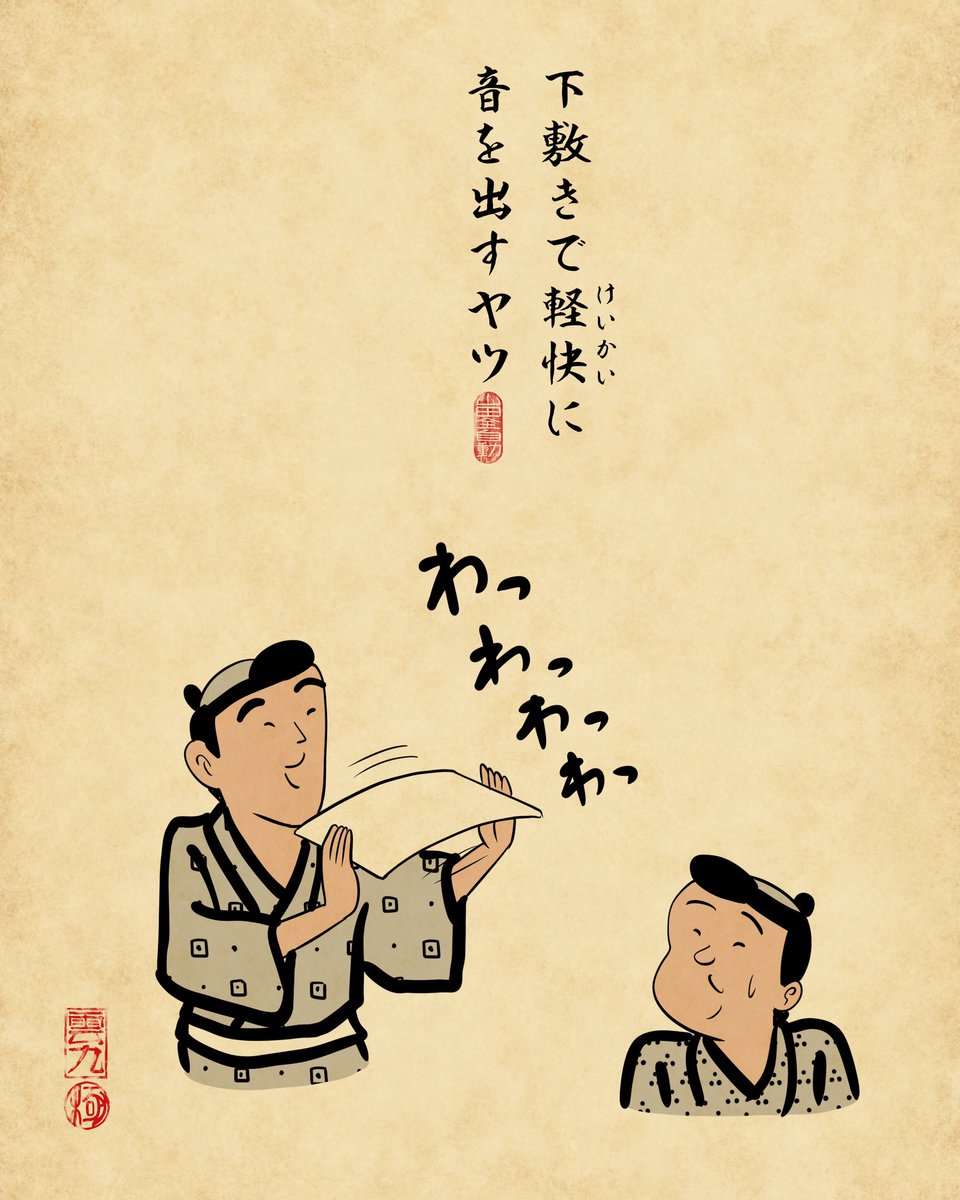 下敷きで軽快に
けいかい
音を出すヤツ
わっ
わっ
わっ
わっ